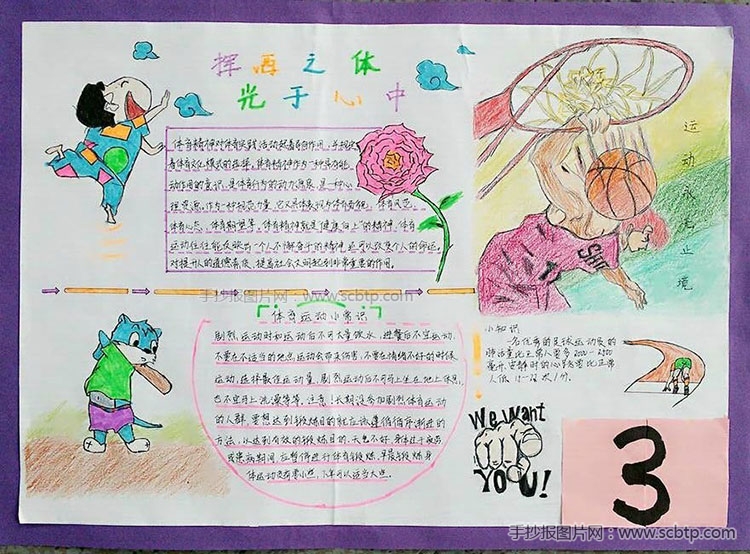 挥洒之体
光于心中
体育精神对体育实践活动起着导向作用，并规定
着体育文化模式的选择。体育精神作为一种具有能
动作用的意识，是体育行为的动力源泉，是一种心
理资源。作为一种规范力量，它又具体表现为体育面貌，体育风范，
体育心态，体育期望等。体育精神就是"健康向上"的精神，体育
运动往往能反映出一个人不懈奋斗的精神，还可以改变个人的命运。
对提升人的道德素质，提高社会文明起到非常重要的作用。
运动永无止境
手抄报图片网：www.scbtp.com
体育运动小常识
剧烈运动时和运动后不可大量饮水，进餐后不宜运动，
不要在不适当的地点运动会带来伤害，不要在情绪不好的时候
运动，选择最佳运动量，剧烈运动后不可马上坐在地上休息，
也不宜马上洗澡等等，注意！长期没参加剧烈体育运动
的人群，要想达到锻炼目的就应该遵循循序渐进的
方法，以达到有效的锻炼目的。天气不好，身体过于疲劳
或患病期间，应暂停进行体育锻炼，早晨锻炼身
体运动负荷要小些，下午可以适当大些。
小知识
一名优秀的足球运动员的
肺活量比正常人要多2000-2500
毫升，安静时的心率要比正常
人低15-22次/分。
We Want
YOU!
3
手抄报图片网：www.scbtp.com